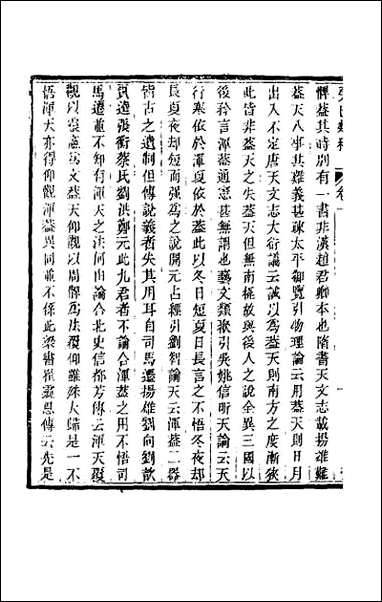 憚蓋其時別有一書非漢趙君卿本也隋書天文志載揚雄難
蓋天八事其難義甚疎太平御覽引物理論云用蓋天則日月
出入不定唐天文志大衍議云誠以爲蓋天則南方之度漸狹
此皆非蓋天之失蓋天但無南極故與後人之說全異三國以
後矜言渾蓋通憲甚無謂也藝文類聚引吳姚信昕天論云天
行寒依於渾夏依於蓋此以冬日短夏日長言之不悟冬夜却
長夏夜却短而强爲之說開元占經引劉智論天云渾蓋二器
皆古之遺制但傳說義者失其用耳自司馬遷揚雄劉向劉歆
賈逵張衡蔡氏劉洪鄭元此九君者不論合渾蓋之用不悟司
馬遷並不知有渾天之法何由論合北史信都芳傳云渾天覆
觀以靈憲爲文蓋天仰觀以周髀爲法覆仰雖殊大歸是一不
悟渾天亦得仰觀渾蓋異同並不係此梁書崔靈恩傳云先是